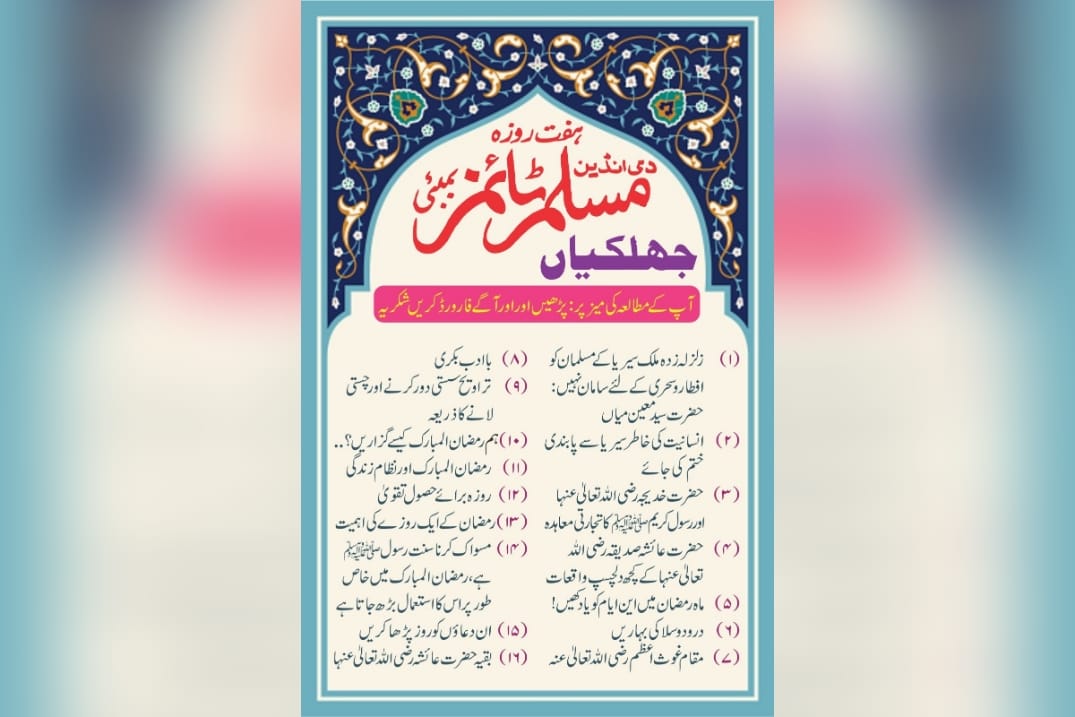 ہفت روزہ
دی انڈین
مسلم ٹائمز بمبئی
جھلکیاں
آپ کے مطالعہ کی میز پر: پڑھیں اور اور آگے فارورڈ کریں شکریہ
(۱) زلزلہ زدہ ملک سیریا کے مسلمان کو
افطار و سحری کے لئے سامان نہیں:
حضرت سید معین میاں
(۲) انسانیت کی خاطر سیریا سے پابندی
ختم کی جائے
(۳) حضرت خدیجہ رضی اللہ تعالیٰ عنہا
اور رسول کریم ﷺ کا تجارتی معاہدہ
(۴) حضرت عائشہ صدیقہ رضی اللہ
تعالیٰ عنہا کے کچھ دلچسپ واقعات
(۵) ماہ رمضان میں این ایام کو یاد کھیں!
(۶) درود وسلا کی بہاریں
(۷) مقام غوث اعظم رضی اللہ تعالیٰ عنہ
(۸) با ادب بکری
(۹) تراویح سستی دور کرنے اور چستی
لانے کا ذریعہ
(۱۰) ہم رمضان المبارک کیسے گزاریں؟..
(۱۱) رمضان المبارک اور نظام زندگی
(۱۲) روزہ برائے حصول تقویٰ
(۱۳) رمضان کے ایک روزے کی اہمیت
(۱۴) مسواک کرنا سنت رسول ﷺ
ہے، رمضان المبارک میں خاص
طور پر اس کا استعمال بڑھ جاتا ہے
(۱۵) ان دعاؤں کو روز پڑھا کریں
(۱۶) بقیہ حضرت عائشہ رضی اللہ تعالیٰ عنہا